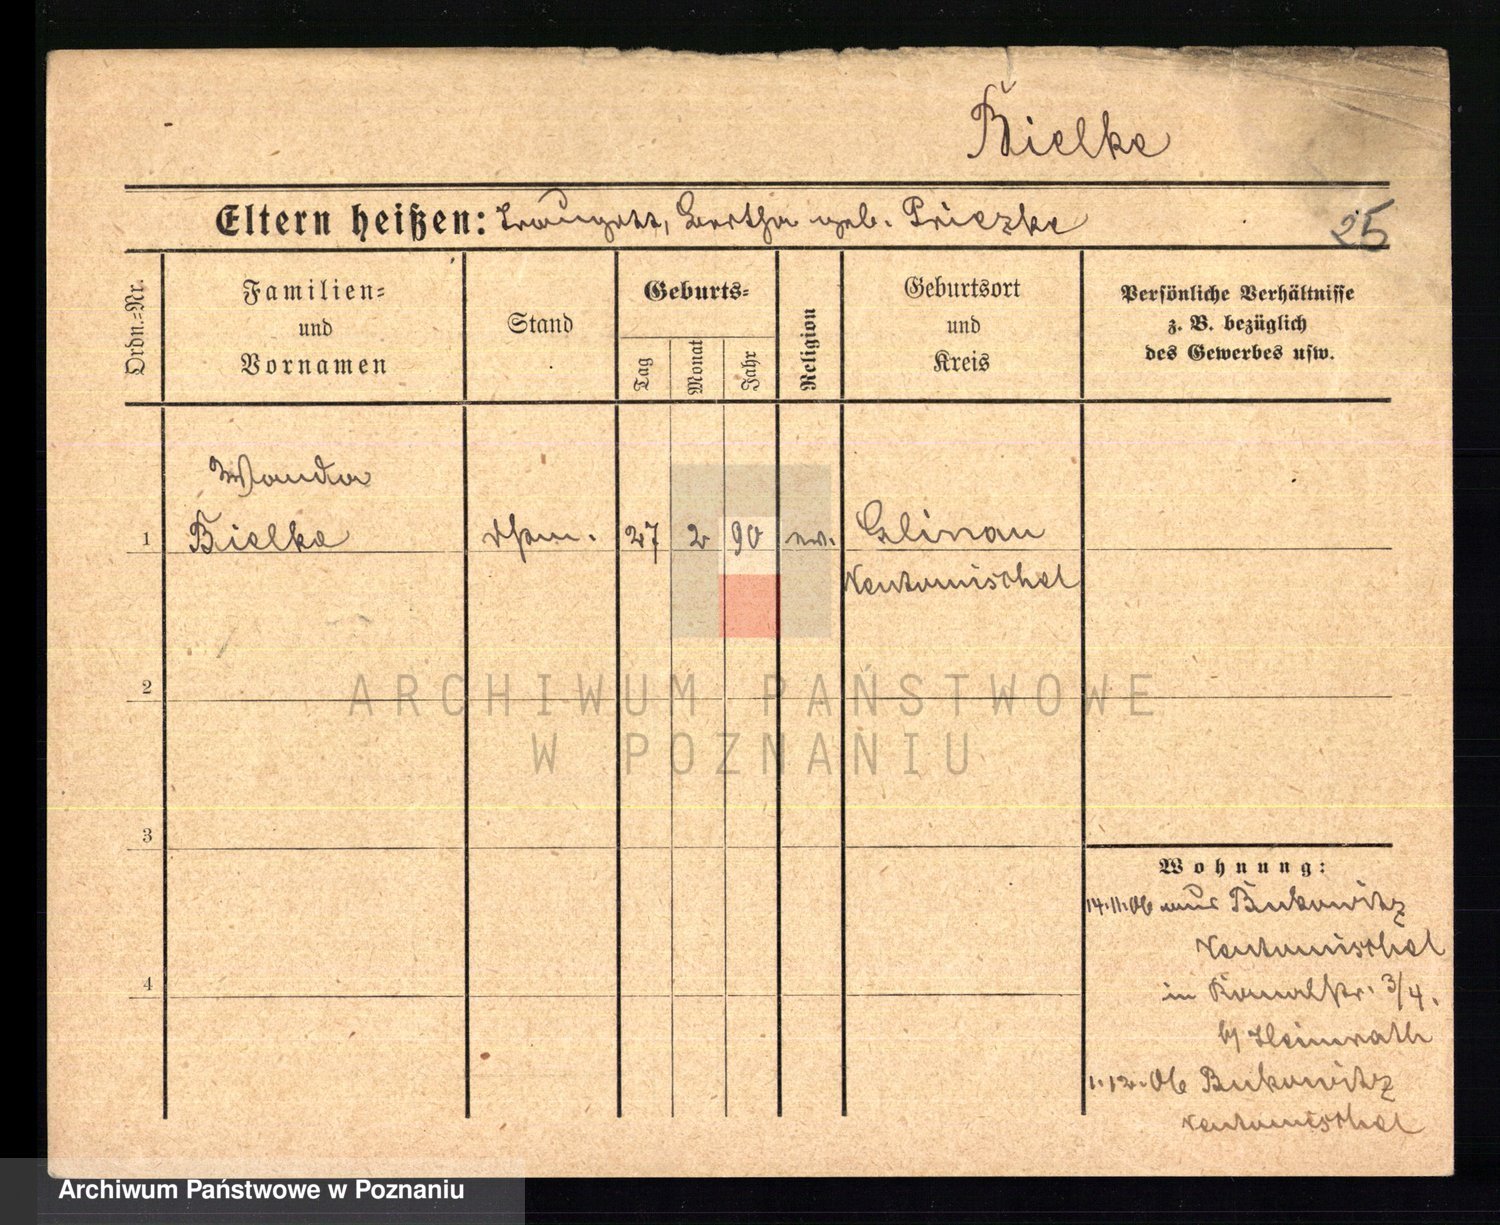 Bielke
Eltern heißen: Traugott, Bertha geb. Priezke
25
Ordn.=Nr.
Familien=
und
Vornamen
Stand
Geburts=
Tag
Monat
Jahr
Religion
Geburtsort
und
Kreis
Persönliche Verhältnisse
z. B. bezüglich
des Gewerbes usw.
Wanda
1 Bielke 27 2 90 ev. Glinau
Neutomischel
2
ARCHIWUM PAŃSTWOWE
W POZNANIU
3
Wohnung:
14.11.06 aus Bukowitz
Neutomischel
in Kanalstr. 3/4.
b/ Heimrath
1.12.06 Bukowitz
Neutomischel
4
Archiwum Państwowe w Poznaniu